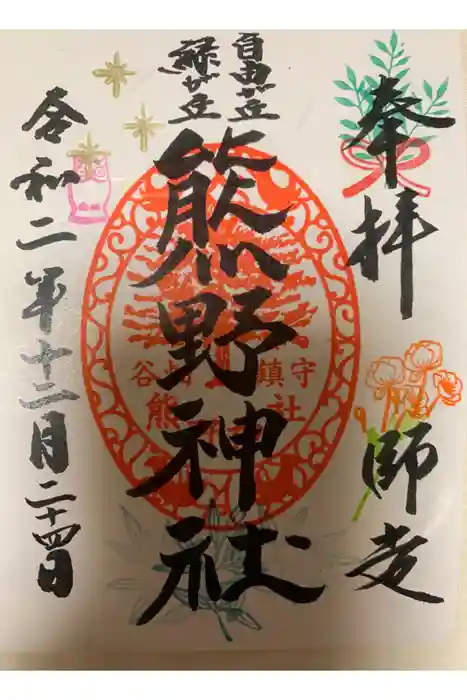 奉拝
師走
自由が丘
緑が丘
熊野神社
谷 鎮守
熊 社
令和二年十二月二十四日